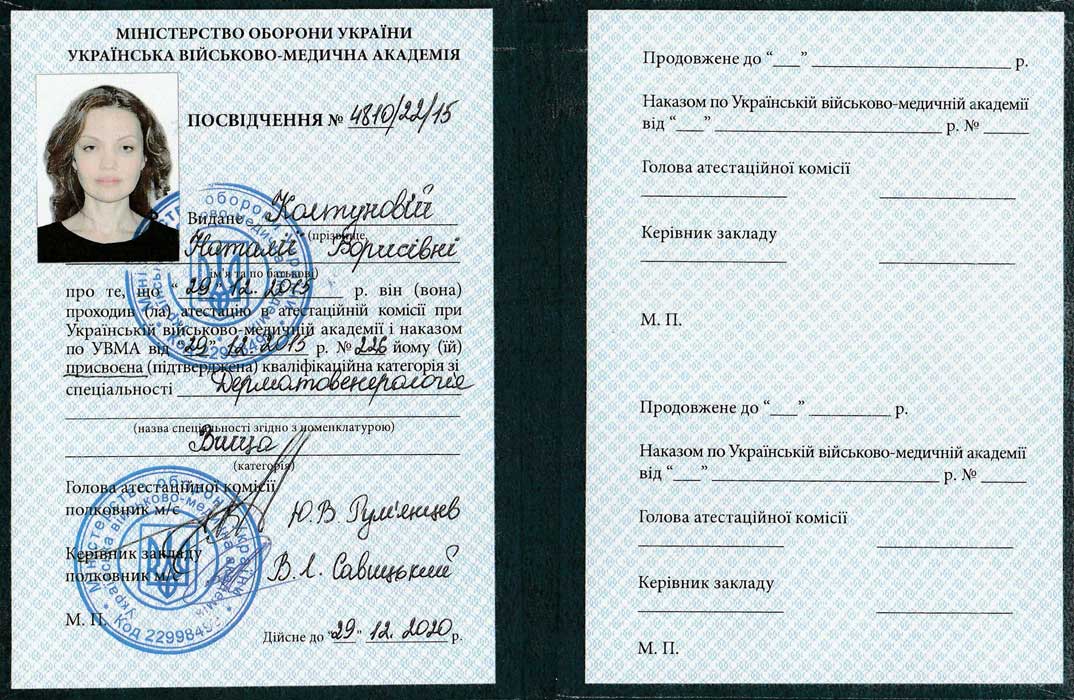 МІНІСТЕРСТВО ОБОРОНИ УКРАЇНИ
УКРАЇНСЬКА ВІЙСЬКОВО-МЕДИЧНА АКАДЕМІЯ
ПОСВІДЧЕННЯ № 4810/22/15
Видане Колтуновій
(прізвище,
Наталії Борисівні
ім'я та по батькові)
про те, що “29” 12. 2015 р. він (вона)
проходив (ла) атестацію в атестаційній комісії при
Українській військово-медичній академії і наказом
по УВМА від “29” 12. 2015 р. № 226 йому (їй)
присвоєна (підтверджена) кваліфікаційна категорія зі
спеціальності Дерматовенерологія
(назва спеціальності згідно з номенклатурою)
Вища
(категорія)
Голова атестаційної комісії
полковник м/с Ю.В Рум'янцев
Керівник закладу
полковник м/с В.Л. Савицький
М. П.
Дійсне до “29” 12. 2020 р.
Міністерство оборони України
Українська військово-медична академія
Код 22998499
Продовжене до “___” ____________________ р.
Наказом по Українській військово-медичній академії
від “___” ____________________ р. № _____
Голова атестаційної комісії
Керівник закладу
М. П.
Продовжене до “___” _________ р.
Наказом по Українській військово-медичній академії
від “___” ____________________ р. № _____
Голова атестаційної комісії
Керівник закладу
М. П.